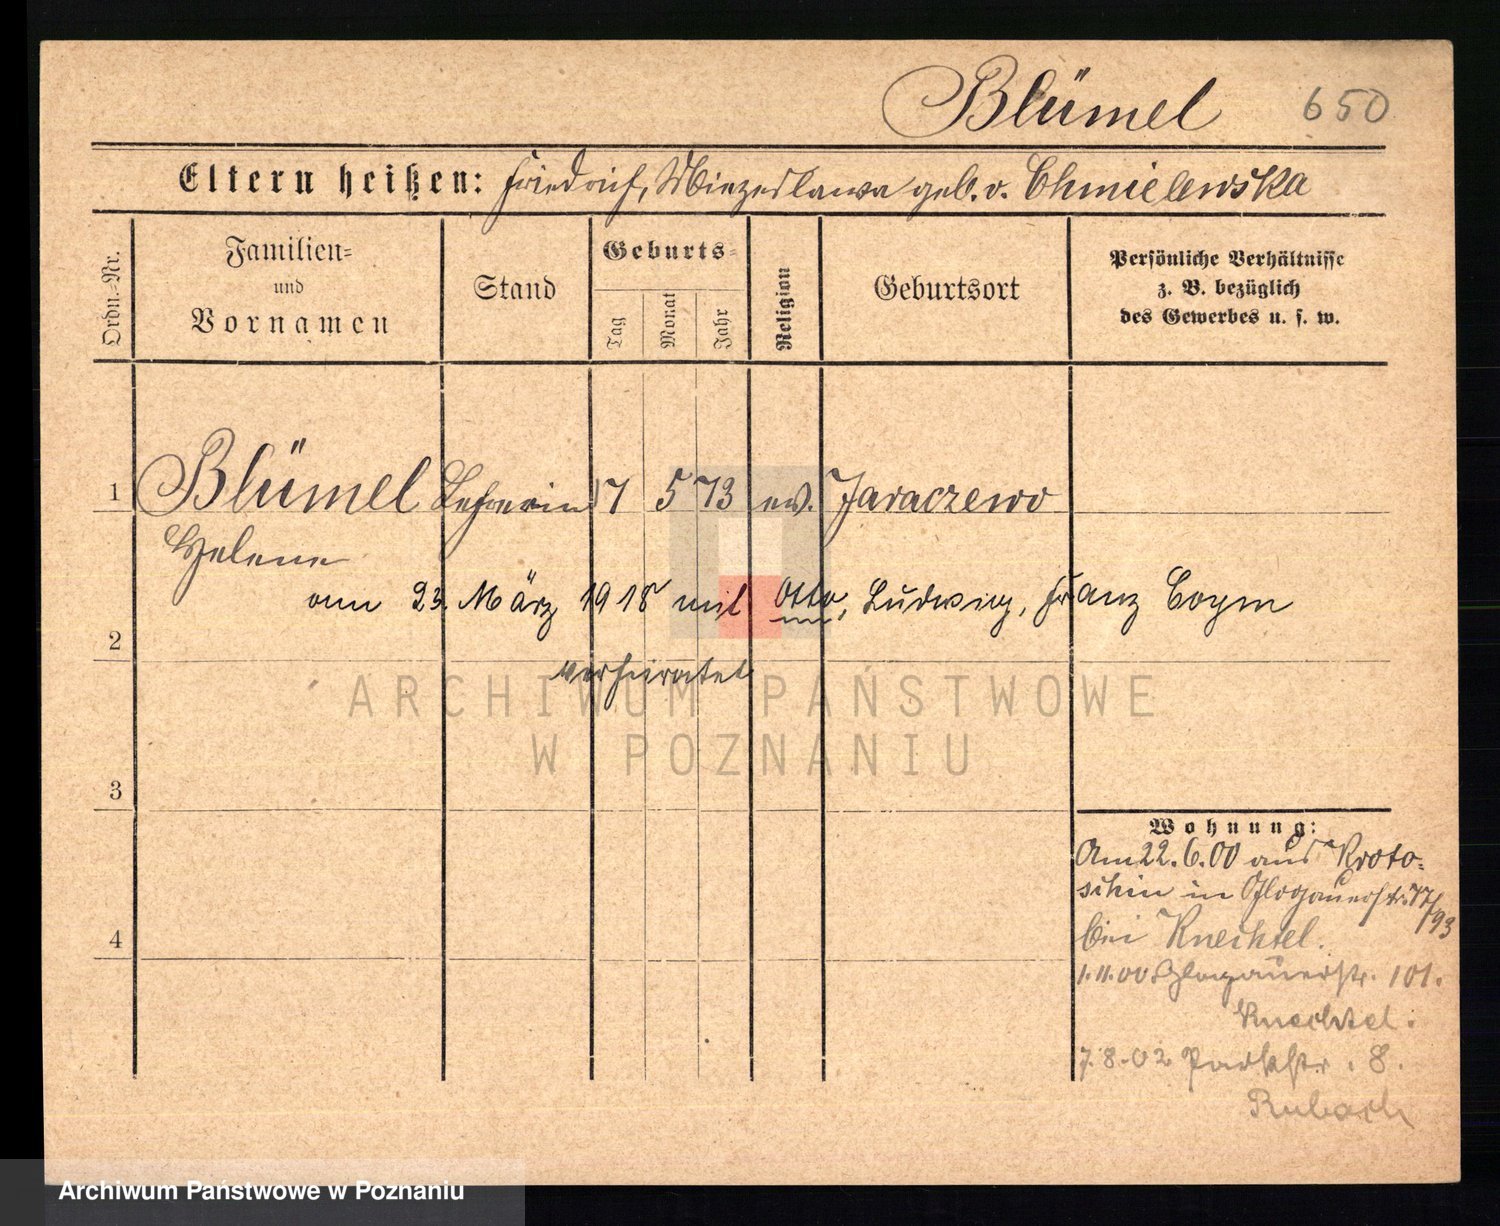 Blümel 650
Eltern heißen: Friedrich, Miezeslawa geb. v. Chmielewska
Ordn.-Nr.
Familien=
und
Vornamen
Stand
Geburts=
Tag
Monat
Jahr
Religion
Geburtsort
Persönliche Verhältnisse
z. B. bezüglich
des Gewerbes u. s. w.
1 Blümel Lehrerin 17 5 73 ev. Jaraczewo
Helene
am 23. März 1918 mit Otto, Ludwig, Franz Coym
2
verheiratet
ARCHIWUM PAŃSTWOWE
W POZNANIU
3
Wohnung:
Am 22.6.00 aus Kroto=
schin in Glogauerstr. 77/93
4
bei Knechtel.
1.11.00 Glogauerstr. 101.
Knechtel.
7.8.02 Parkstr. 8.
Rubach
Archiwum Państwowe w Poznaniu